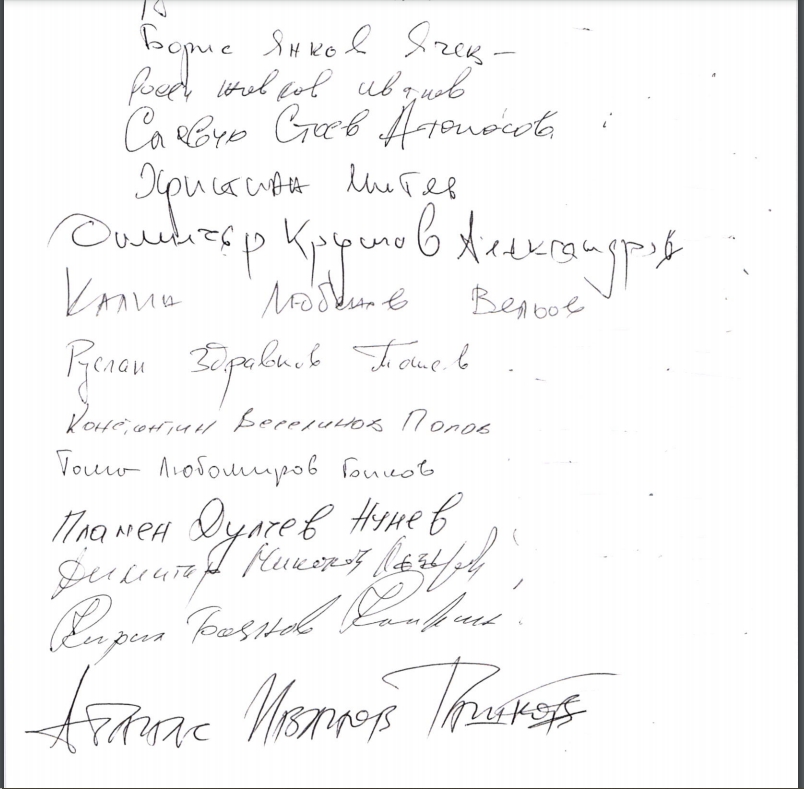 Борис Янков Ячев
Росен Живков Иванов
Славчо Стоев Атанасов
Християн Митев
Димитър Крумов Александров
Калин Любенов Вельов
Руслан Здравков Тошев
Константин Веселинов Попов
Тома Любомиров Биков
Пламен Дулчев Нунев
Димитър Николов Лазаров
Кирил Боянов Калфин
Атанас Иванов Ташков